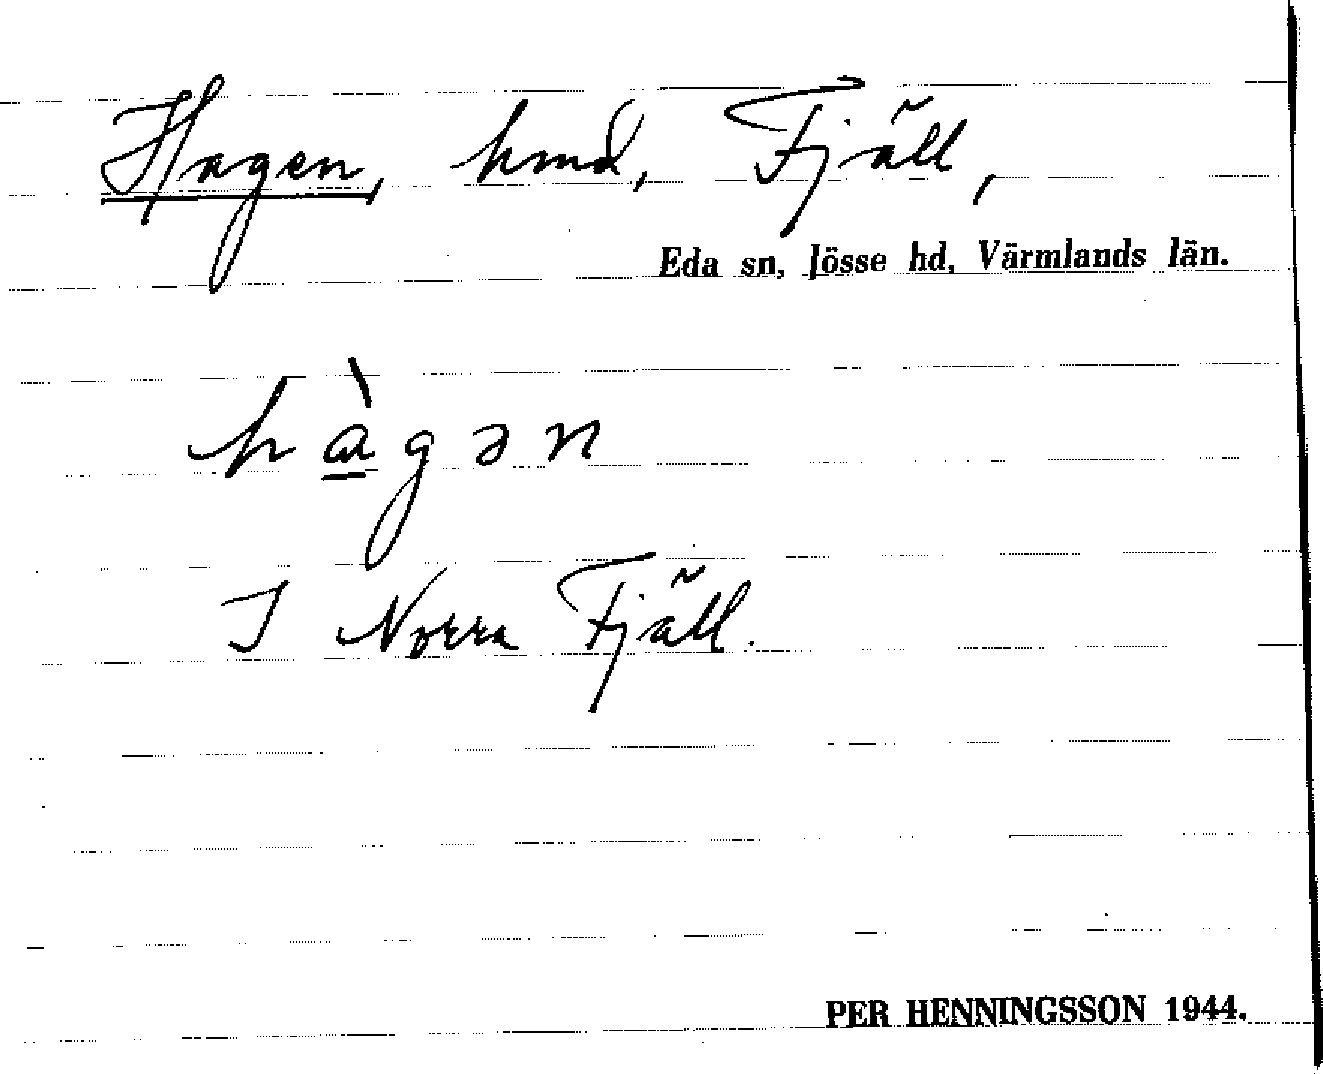 Hagen, hmd, Fjäll,
Eda sn, Jösse hd, Värmlands län.
hà̱gən
I Norra Fjäll.
PER HENNINGSSON 1944.